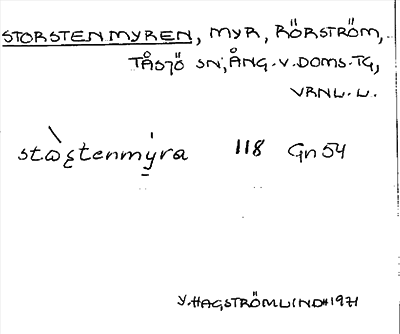 STORSTENMYREN, MYR, RÖRSTRÖM,
TÅSJÖ SN, ÅNG. V. DOMS. TG,
VRNL. L.
stɷ̀ꜫtenmýra 118 Gn 54
Y. HAGSTRÖM LINDH 1971